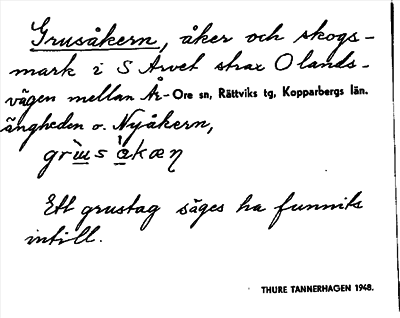 Grusåkern, åker och skogs-
mark i S Arvet strax O lands-
vägen mellan År- Ore sn, Rättviks tg, Kopparbergs län.
ängheden o. Nyåkern,
Ett grustag säges ha funnits
intill.
THURE TANNERHAGEN 1948.